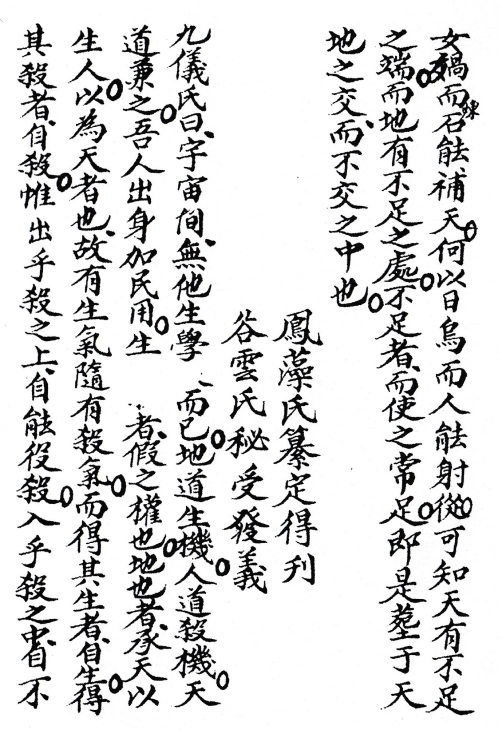 女媧而石能補天何以日烏而人能射從可知天有不足
之端而地有不足之處不足者而使之常足即是塟于天
地之交而不交之中也
鳳藻氏纂定得刋
谷雲氏秘受發義
九儀氏曰宇宙間無他生學而已地道生機人道殺機天
道兼之吾人出身加民用生者假之權也地也者承天以
生人以為天者也故有生氣隨有殺氣而得其生者自生得
其殺者自殺惟出乎殺之上自能役殺入乎殺之中自不